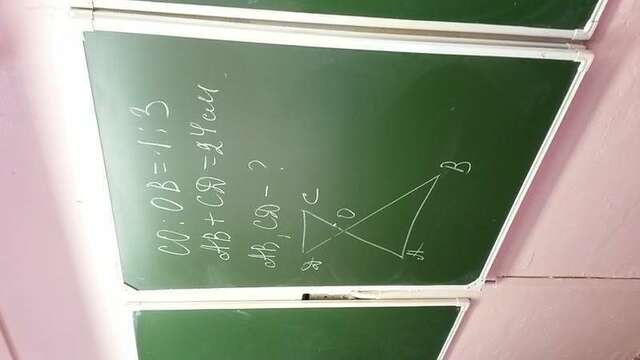 CO : OB = 1 : 3
AB + CD = 24 см.
AB, CD - ?
D
C
O
A
B